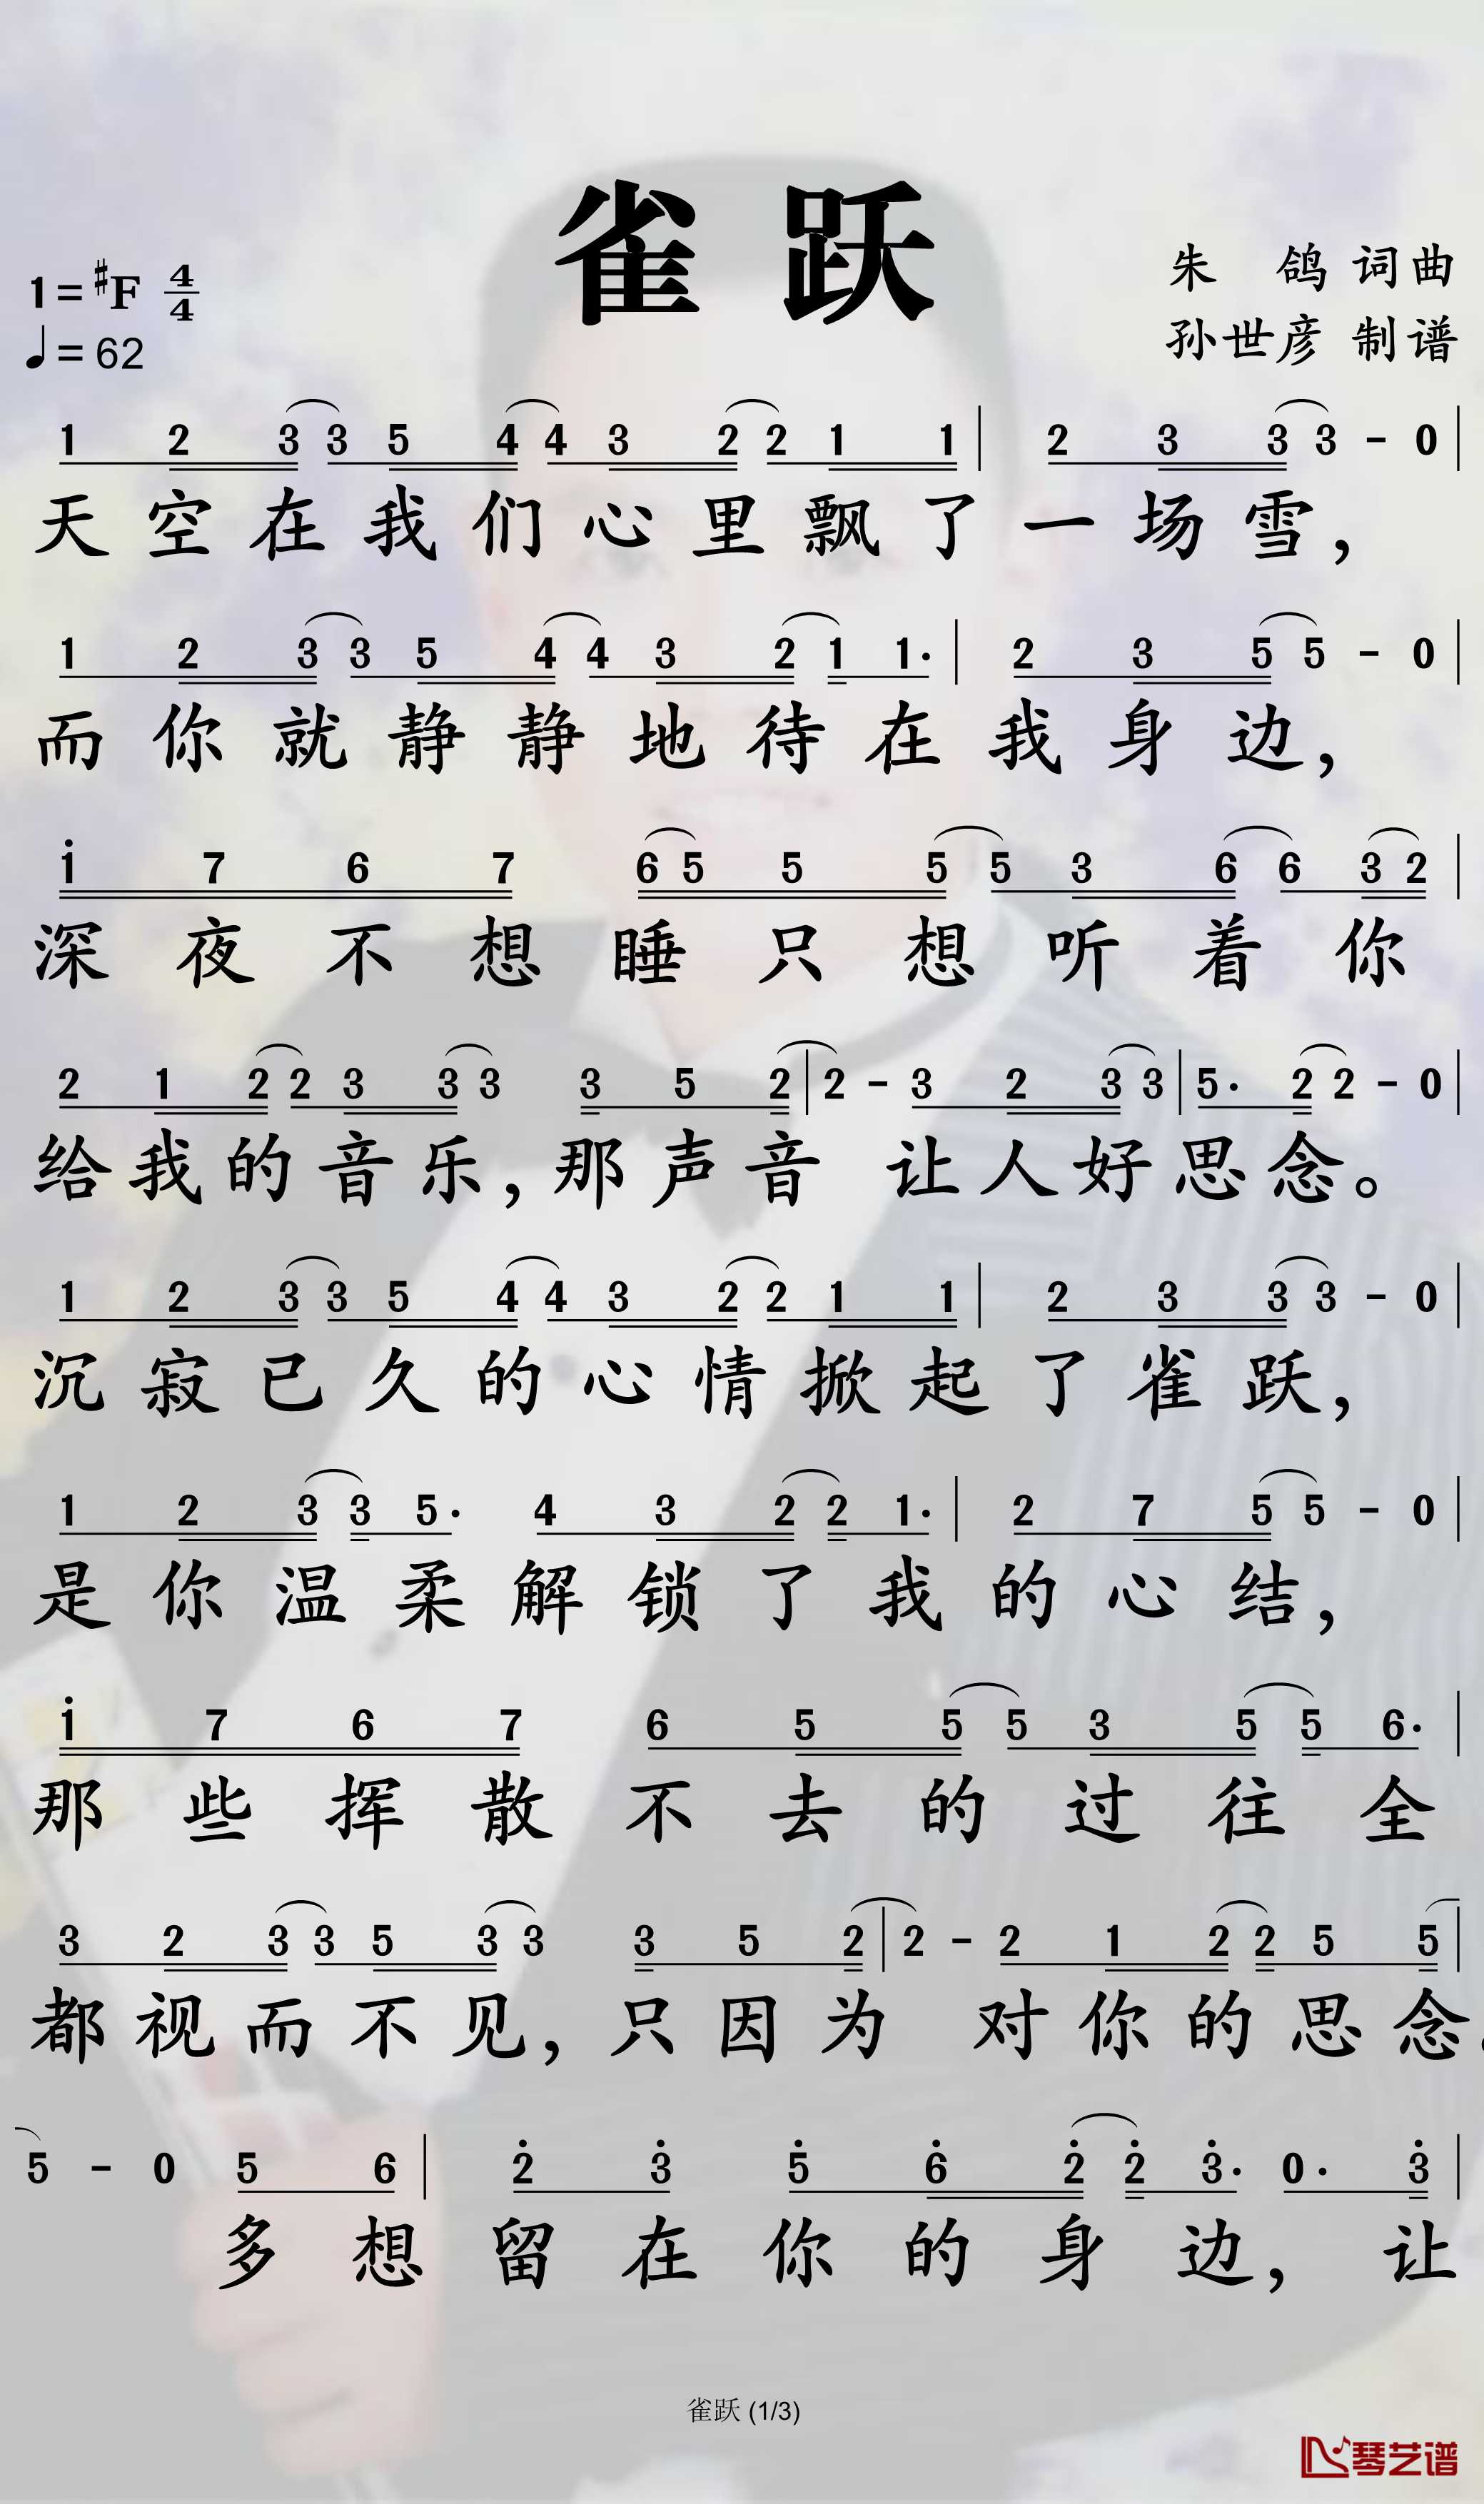 雀跃
1=♯F 4/4
♩=62
朱 鸽 词曲
孙世彦 制谱
1 2 3 3 5 4 4 3 2 2 1 1 | 2 3 3 3 - 0 |
天空在我们心里飘了一场雪，
1 2 3 3 5 4 4 3 2 1 1· | 2 3 5 5 - 0 |
而你就静静地待在我身边，
i 7 6 7 6 5 5 5 5 3 6 6 3 2 |
深夜不想睡只想听着你
2 1 2 2 3 3 3 3 5 2 | 2 - 3 2 3 3 | 5· 2 2 - 0 |
给我的音乐，那声音 让人好思念。
1 2 3 3 5 4 4 3 2 2 1 1 | 2 3 3 3 - 0 |
沉寂已久的心情掀起了雀跃，
1 2 3 3 5· 4 3 2 2 1· | 2 7 5 5 - 0 |
是你温柔解锁了我的心结，
i 7 6 7 6 5 5 5 3 5 5 6· |
那些挥散不去的过往全
3 2 3 3 5 3 3 3 5 2 | 2 - 2 1 2 2 5 5 |
都视而不见，只因为 对你的思念。
5 - 0 5 6 | 2̇ 3̇ 5̇ 6̇ 2̇ 2̇ 3̇· 0· 3̇ |
多想留在你的身边，让
雀跃 (1/3)
琴艺谱